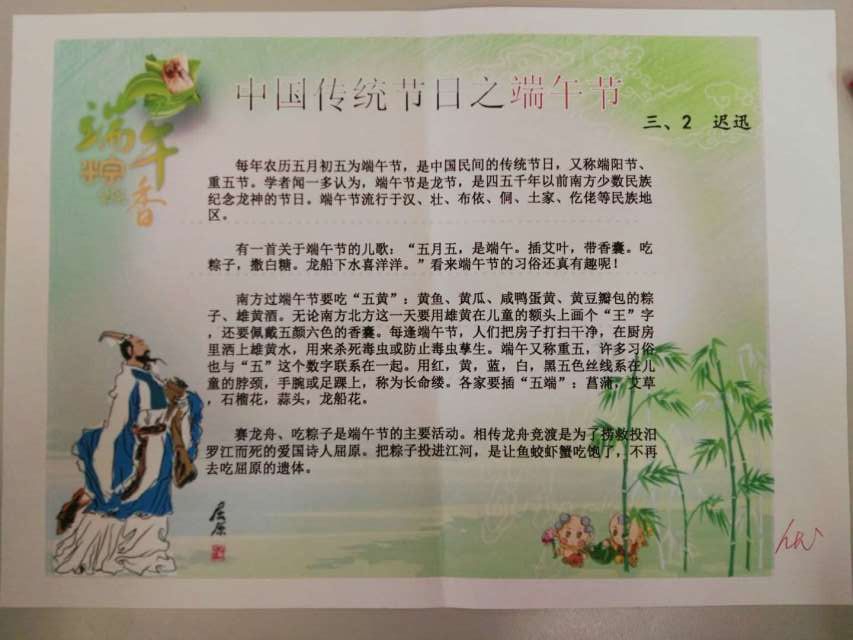 中国传统节日之端午节
端午
粽
香
三、2 迟迅
每年农历五月初五为端午节，是中国民间的传统节日，又称端阳节、
重五节。学者闻一多认为，端午节是龙节，是四五千年以前南方少数民族
纪念龙神的节日。端午节流行于汉、壮、布依、侗、土家、仡佬等民族地
区。
有一首关于端午节的儿歌：“五月五，是端午。插艾叶，带香囊。吃
粽子，撒白糖。龙船下水喜洋洋。”看来端午节的习俗还真有趣呢！
南方过端午节要吃“五黄”：黄鱼、黄瓜、咸鸭蛋黄、黄豆瓣包的粽
子、雄黄酒。无论南方北方这一天要用雄黄在儿童的额头上画个“王”字
，还要佩戴五颜六色的香囊。每逢端午节，人们把房子打扫干净，在厨房
里洒上雄黄水，用来杀死毒虫或防止毒虫孳生。端午又称重五，许多习俗
也与“五”这个数字联系在一起。用红，黄，蓝，白，黑五色丝线系在儿
童的脖颈，手腕或足踝上，称为长命缕。各家要插“五端”：菖蒲，艾草
，石榴花，蒜头，龙船花。
赛龙舟、吃粽子是端午节的主要活动。相传龙舟竞渡是为了捞救投汨
罗江而死的爱国诗人屈原。把粽子投进江河，是让鱼蛟虾蟹吃饱了，不再
去吃屈原的遗体。
屈原